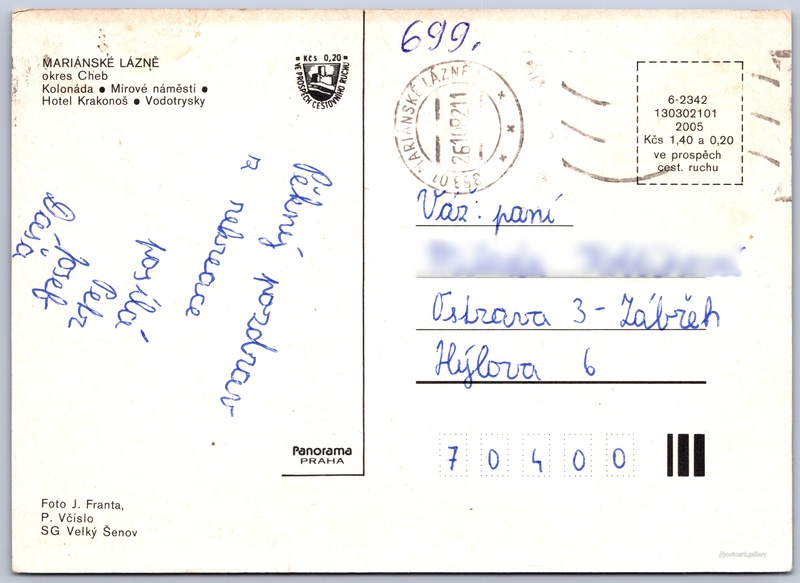 MARIÁNSKÉ LÁZNĚ
okres Cheb
Kolonáda ● Mírové náměstí ●
Hotel Krakonoš ● Vodotrysky
Kčs 0,20
VE PROSPĚCH CESTOVNÍHO RUCHU
Pěkný pozdrav
z rekreace
posílá
Petr
Josef
Dáša
Panorama
PRAHA
Foto J. Franta,
P. Včíslo
SG Velký Šenov
699.
353 01 MARIÁNSKÉ LÁZNĚ
6-2342
130302101
2005
Kčs 1,40 a 0,20
ve prospěch
cest. ruchu
Váž. paní
Ostrava 3 - Zábřeh
Hýlova 6
70400
postcard.gallery